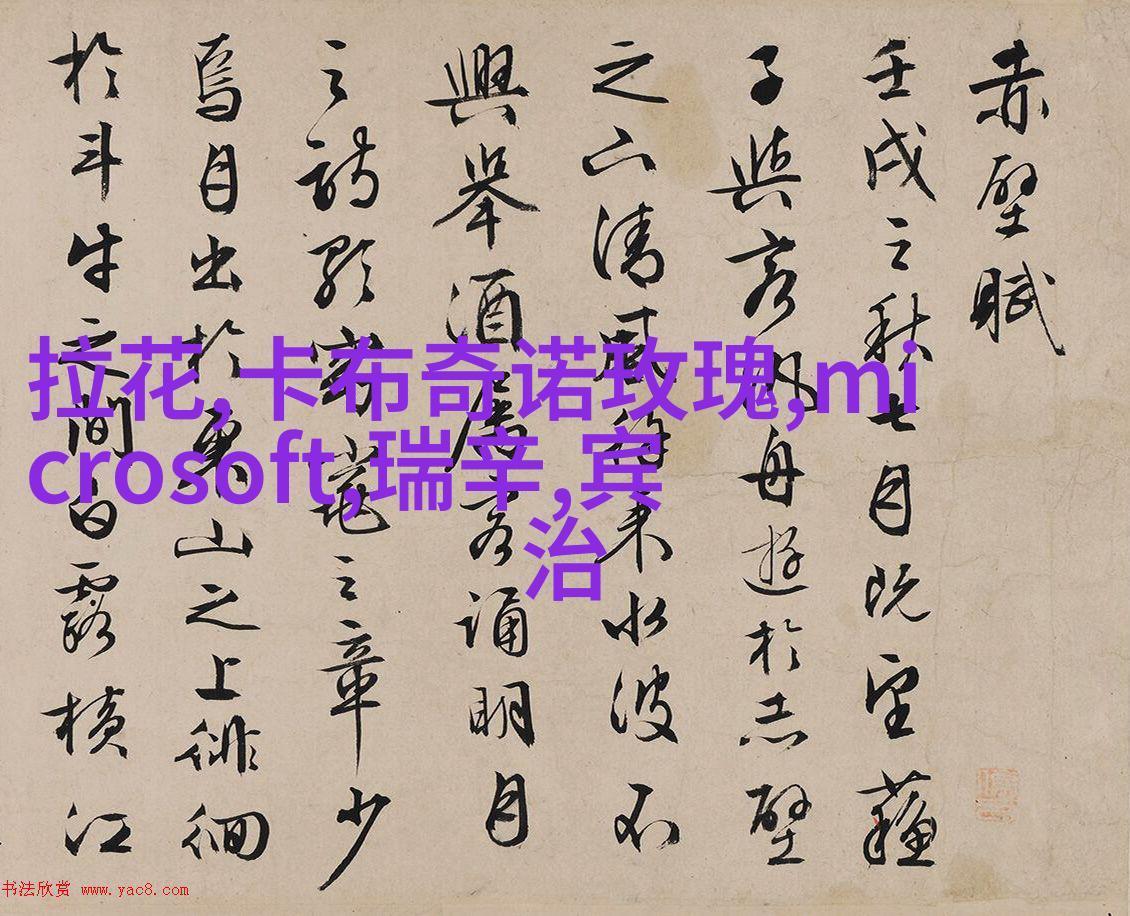 赤壁賦
壬戌之秋七月既望蘇
子與客泛舟遊於赤壁
之下清風徐來水波不
興舉酒屬客誦明月
之詩歌窈窕之章少
焉月出於東山之上徘徊
於斗牛之間白露橫江
拉花,卡布奇诺玫瑰,mi
crosoft,瑞辛,宾
治
书法欣赏 www.yac8.com